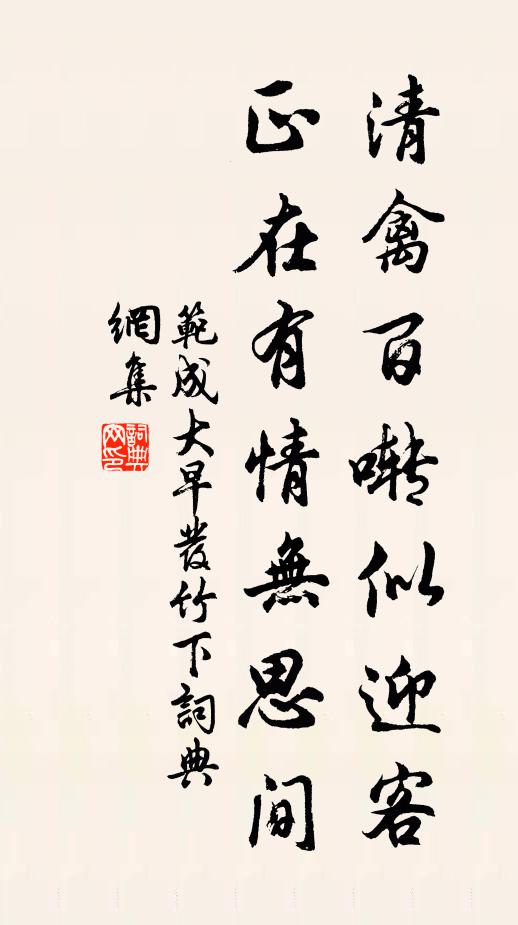 清禽百囀似迎客
正在有情無思間
範成大早發竹下詞典
網集
詞典網印